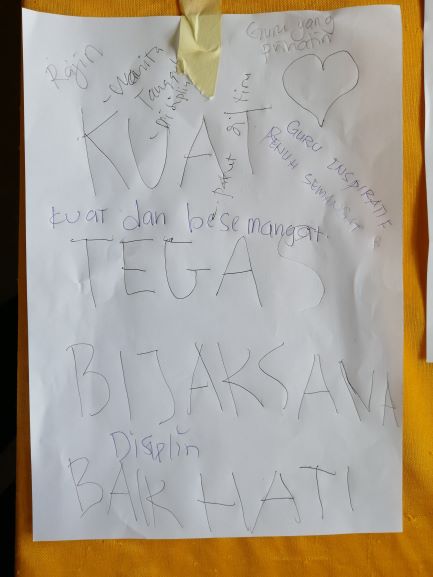 Rajin
- Wanita
Tangguh
- Disiplin
Guru yang
prihatin
KUAT
patut di tiru
GURU INSPIRATIF
PENUH SEMANGAT
kuat dan besemangat.
TEGAS
BIJAKSANA
Displin
BAIK HATI